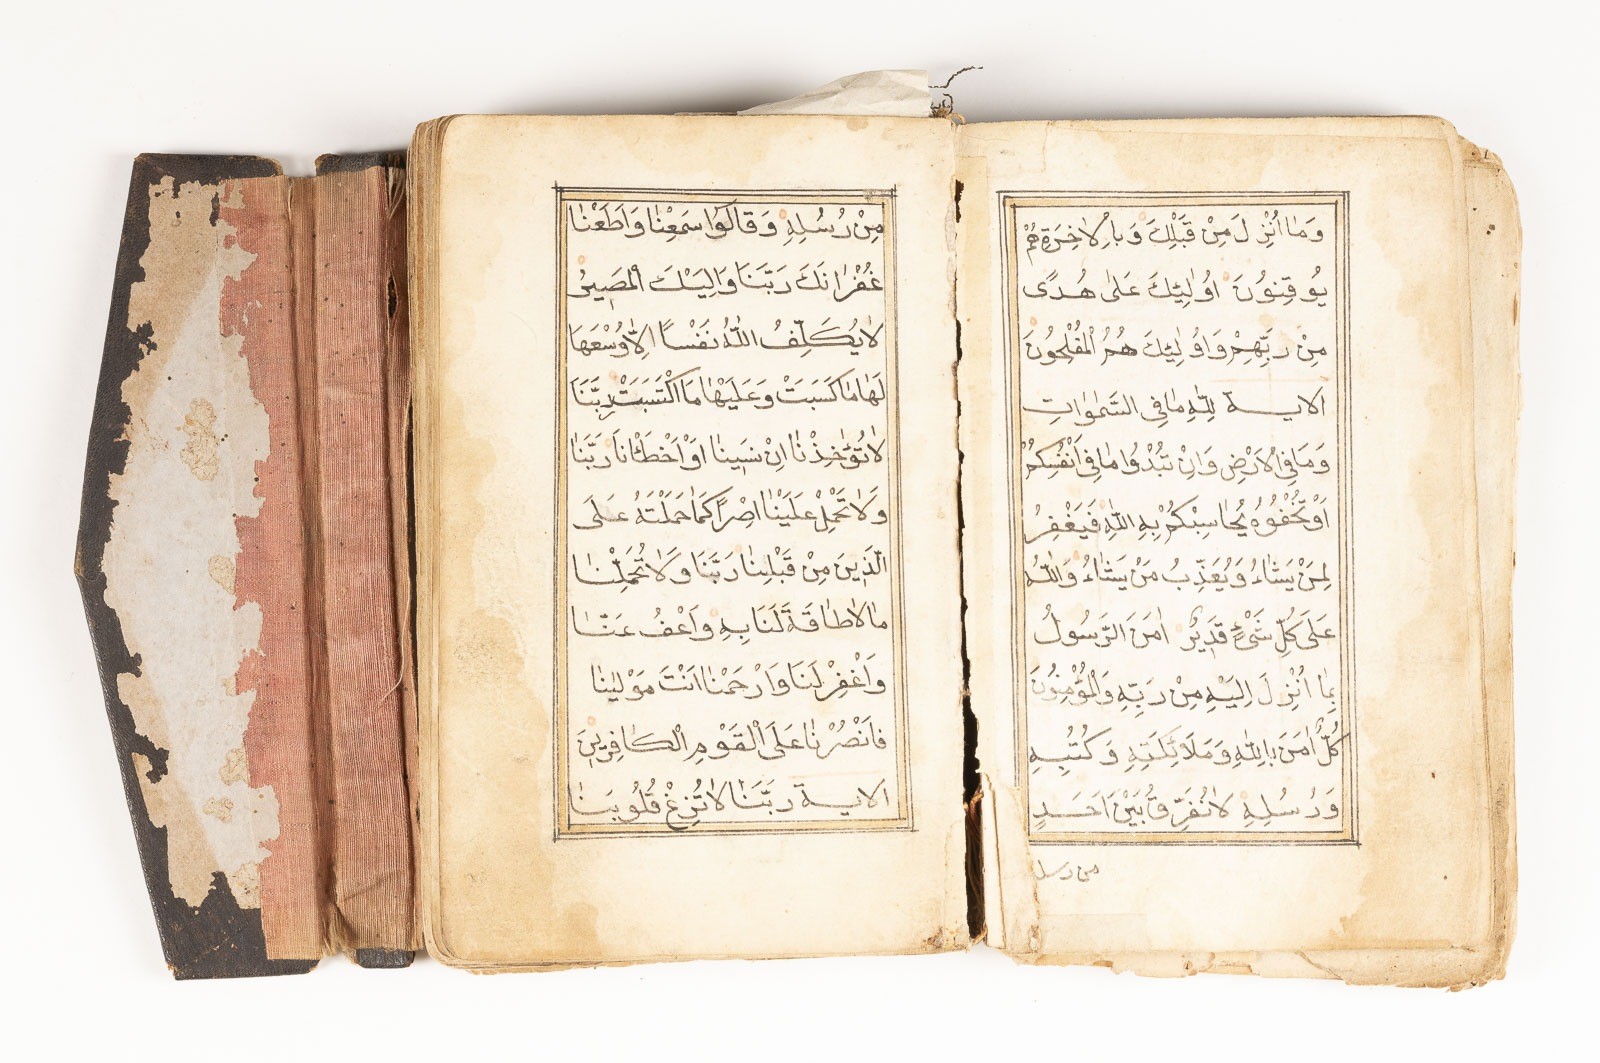 وَمَا اُنْزِلَ مِنْ قَبْلِكَ وَبِالْاٰخِرَةِ هُمْ
يُوقِنُونَ اُولٰئِكَ عَلٰى هُدًى
مِنْ رَبِّهِمْ وَاُولٰئِكَ هُمُ الْمُفْلِحُونَ
الاية لِلّٰهِ مَا فِى السَّمٰوَاتِ
وَمَا فِى الْاَرْضِ وَاِنْ تُبْدُوا مَا فِى اَنْفُسِكُمْ
اَوْ تُخْفُوهُ يُحَاسِبْكُمْ بِهِ اللّٰهُ فَيَغْفِرُ
لِمَنْ يَشَاءُ وَيُعَذِّبُ مَنْ يَشَاءُ وَاللّٰهُ
عَلَى كُلِّ شَىْءٍ قَدِيرٌ اٰمَنَ الرَّسُولُ
بِمَا اُنْزِلَ اِلَيْهِ مِنْ رَبِّهِ وَالْمُؤْمِنُونَ
كُلٌّ اٰمَنَ بِاللّٰهِ وَمَلَائِكَتِهِ وَكُتُبِهِ
وَرُسُلِهِ لَا نُفَرِّقُ بَيْنَ اَحَدٍ
من رسله
مِنْ رُسُلِهِ وَقَالُوا سَمِعْنَا وَاَطَعْنَا
غُفْرَانَكَ رَبَّنَا وَاِلَيْكَ الْمَصِيرُ
لَا يُكَلِّفُ اللّٰهُ نَفْسًا اِلَّا وُسْعَهَا
لَهَا مَا كَسَبَتْ وَعَلَيْهَا مَا اكْتَسَبَتْ رَبَّنَا
لَا تُؤَاخِذْنَا اِنْ نَسِينَا اَوْ اَخْطَأْنَا رَبَّنَا
وَلَا تَحْمِلْ عَلَيْنَا اِصْرًا كَمَا حَمَلْتَهُ عَلَى
الَّذِينَ مِنْ قَبْلِنَا رَبَّنَا وَلَا تُحَمِّلْنَا
مَا لَا طَاقَةَ لَنَا بِهِ وَاعْفُ عَنَّا
وَاغْفِرْ لَنَا وَارْحَمْنَا اَنْتَ مَوْلٰينَا
فَانْصُرْنَا عَلَى الْقَوْمِ الْكَافِرِينَ
الاية رَبَّنَا لَا تُزِغْ قُلُوبَنَا